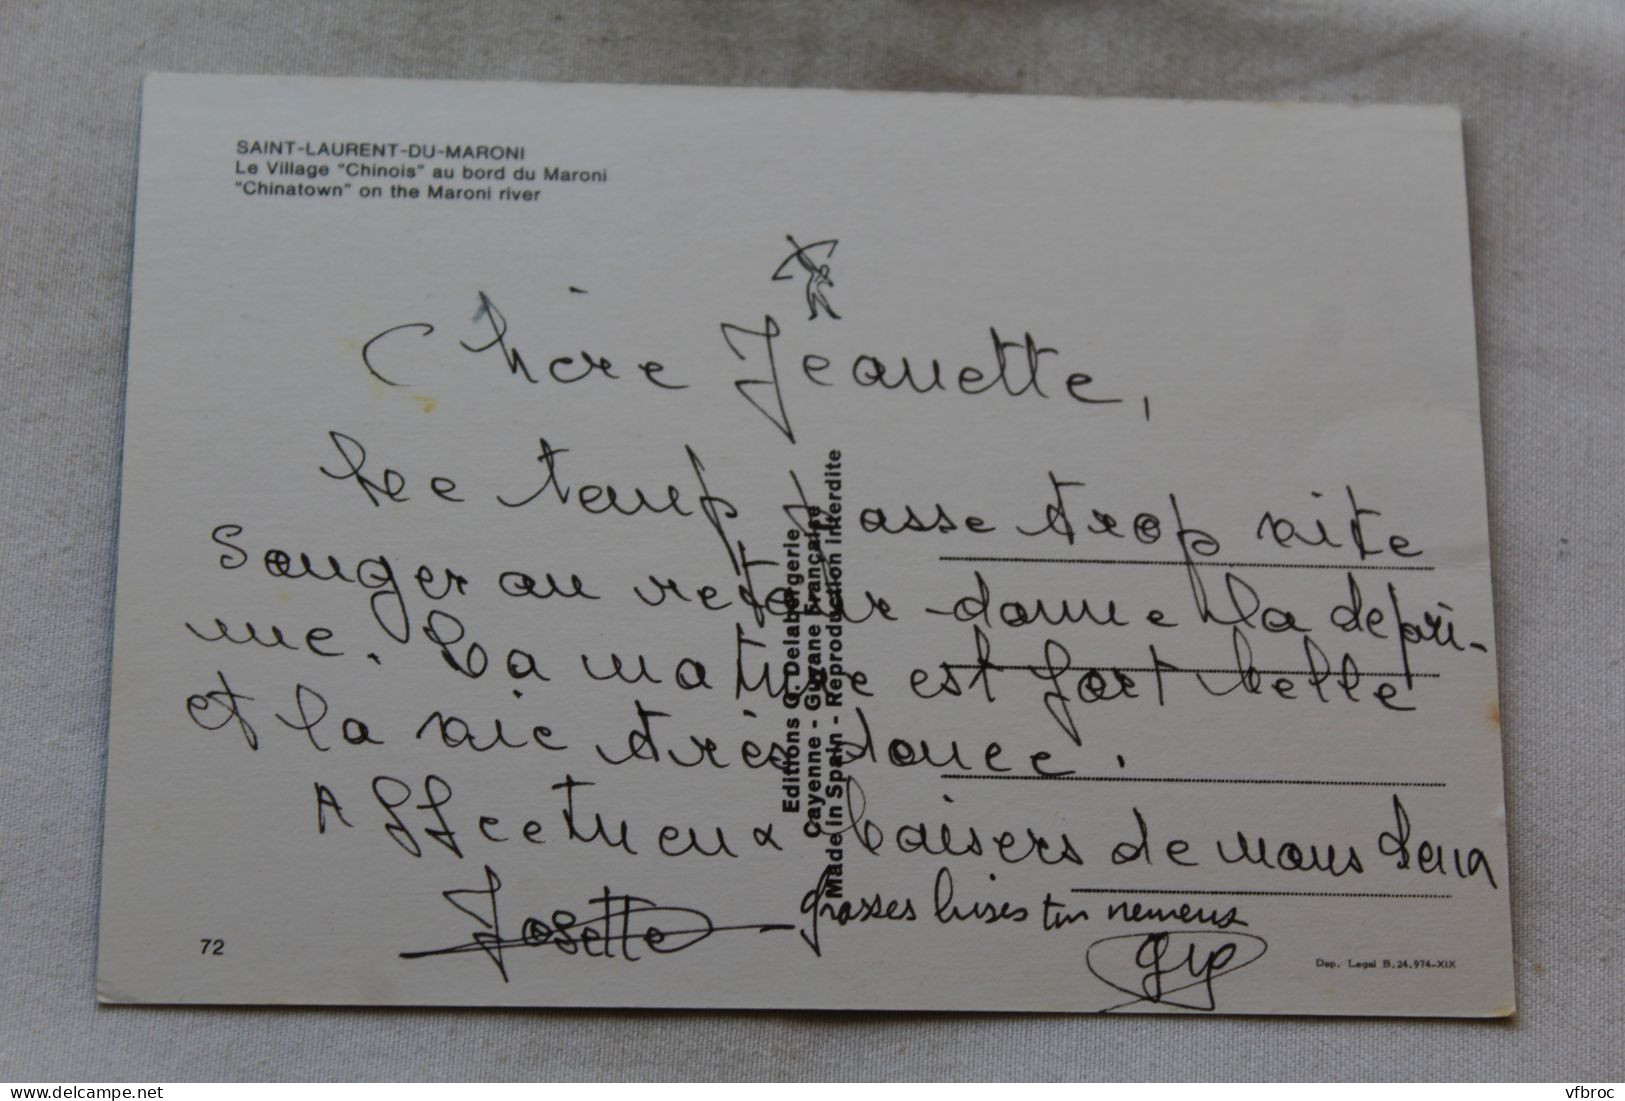 SAINT-LAURENT-DU-MARONI
Le Village "Chinois" au bord du Maroni
"Chinatown" on the Maroni river
Chère Jeanette,
Le temps passe trop vite
Songer au retour donne la dépri-
me. La nature est fort belle
et la vie très douce.
Affectueux baisers de nous deux
Josette
grosses bises
Gyp
Editions G. Delabergerie
Cayenne - Guyane Française
Made in Spain - Reproduction interdite
72
Dep. Legal B. 24.974-XIX
delcampe.net
vfbroc